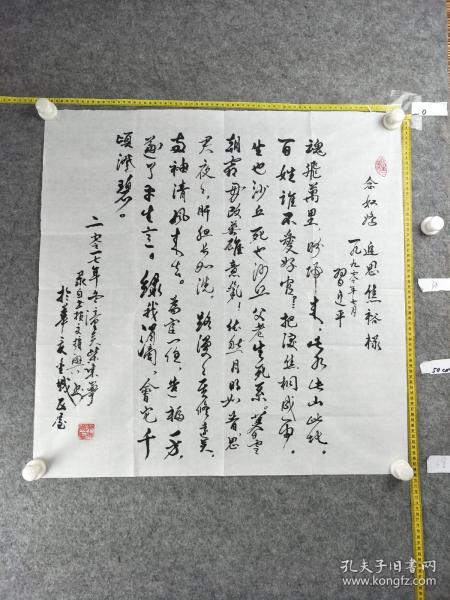 念奴娇 追思焦裕禄
一九九〇年七月
习近平
魂飞萬里，盼归来，此水此山此地。
百姓谁不爱好官？把泪焦桐成雨。
生也沙丘，死也沙丘，父老生死系。暮雪
朝霜，毋改英雄意气！依然月明如昔，思
君夜夜，肝胆长如洗。路漫漫其修远矣，
两袖清风来去。为官一任，造福一方，
遂了平生意。绿我涓滴，会它千
顷澄碧。
二〇一七年冬
50cm
孔夫子旧书网
www.kongfz.com